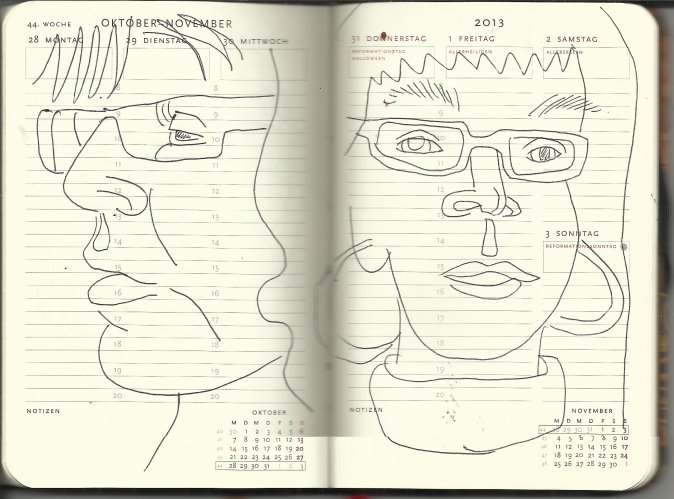 44. WOCHE OKTOBER–NOVEMBER
28 MONTAG 29 DIENSTAG 30 MITTWOCH
8 8
9 9
10 10
11 11
12 12
13 13
14 14
15 15
16 16
17 17
18 18
19 19
20 20
NOTIZEN
OKTOBER
M D F S S
40 30 1 2 3 4 5 6
41 7 8 9 10 11 12 13
42 14 15 16 17 18 19 20
43 21 22 23 24 25 26 27
44 28 29 30 31 1 2 3
2013
31 DONNERSTAG 1 FREITAG 2 SAMSTAG
REFORMATIONSTAG ALLERHEILIGEN ALLERSEELEN
HALLOWEEN
9
10
12
14
15
16
17
18
19
20
3 SONNTAG
REFORMATIONSSONNTAG
NOTIZEN
NOVEMBER
M D M D F S S
44 28 29 30 31 1 2 3
45 4 5 6 7 8 9 10
46 11 12 13 14 15 16 17
47 18 19 20 21 22 23 24
48 25 26 27 28 29 30 1